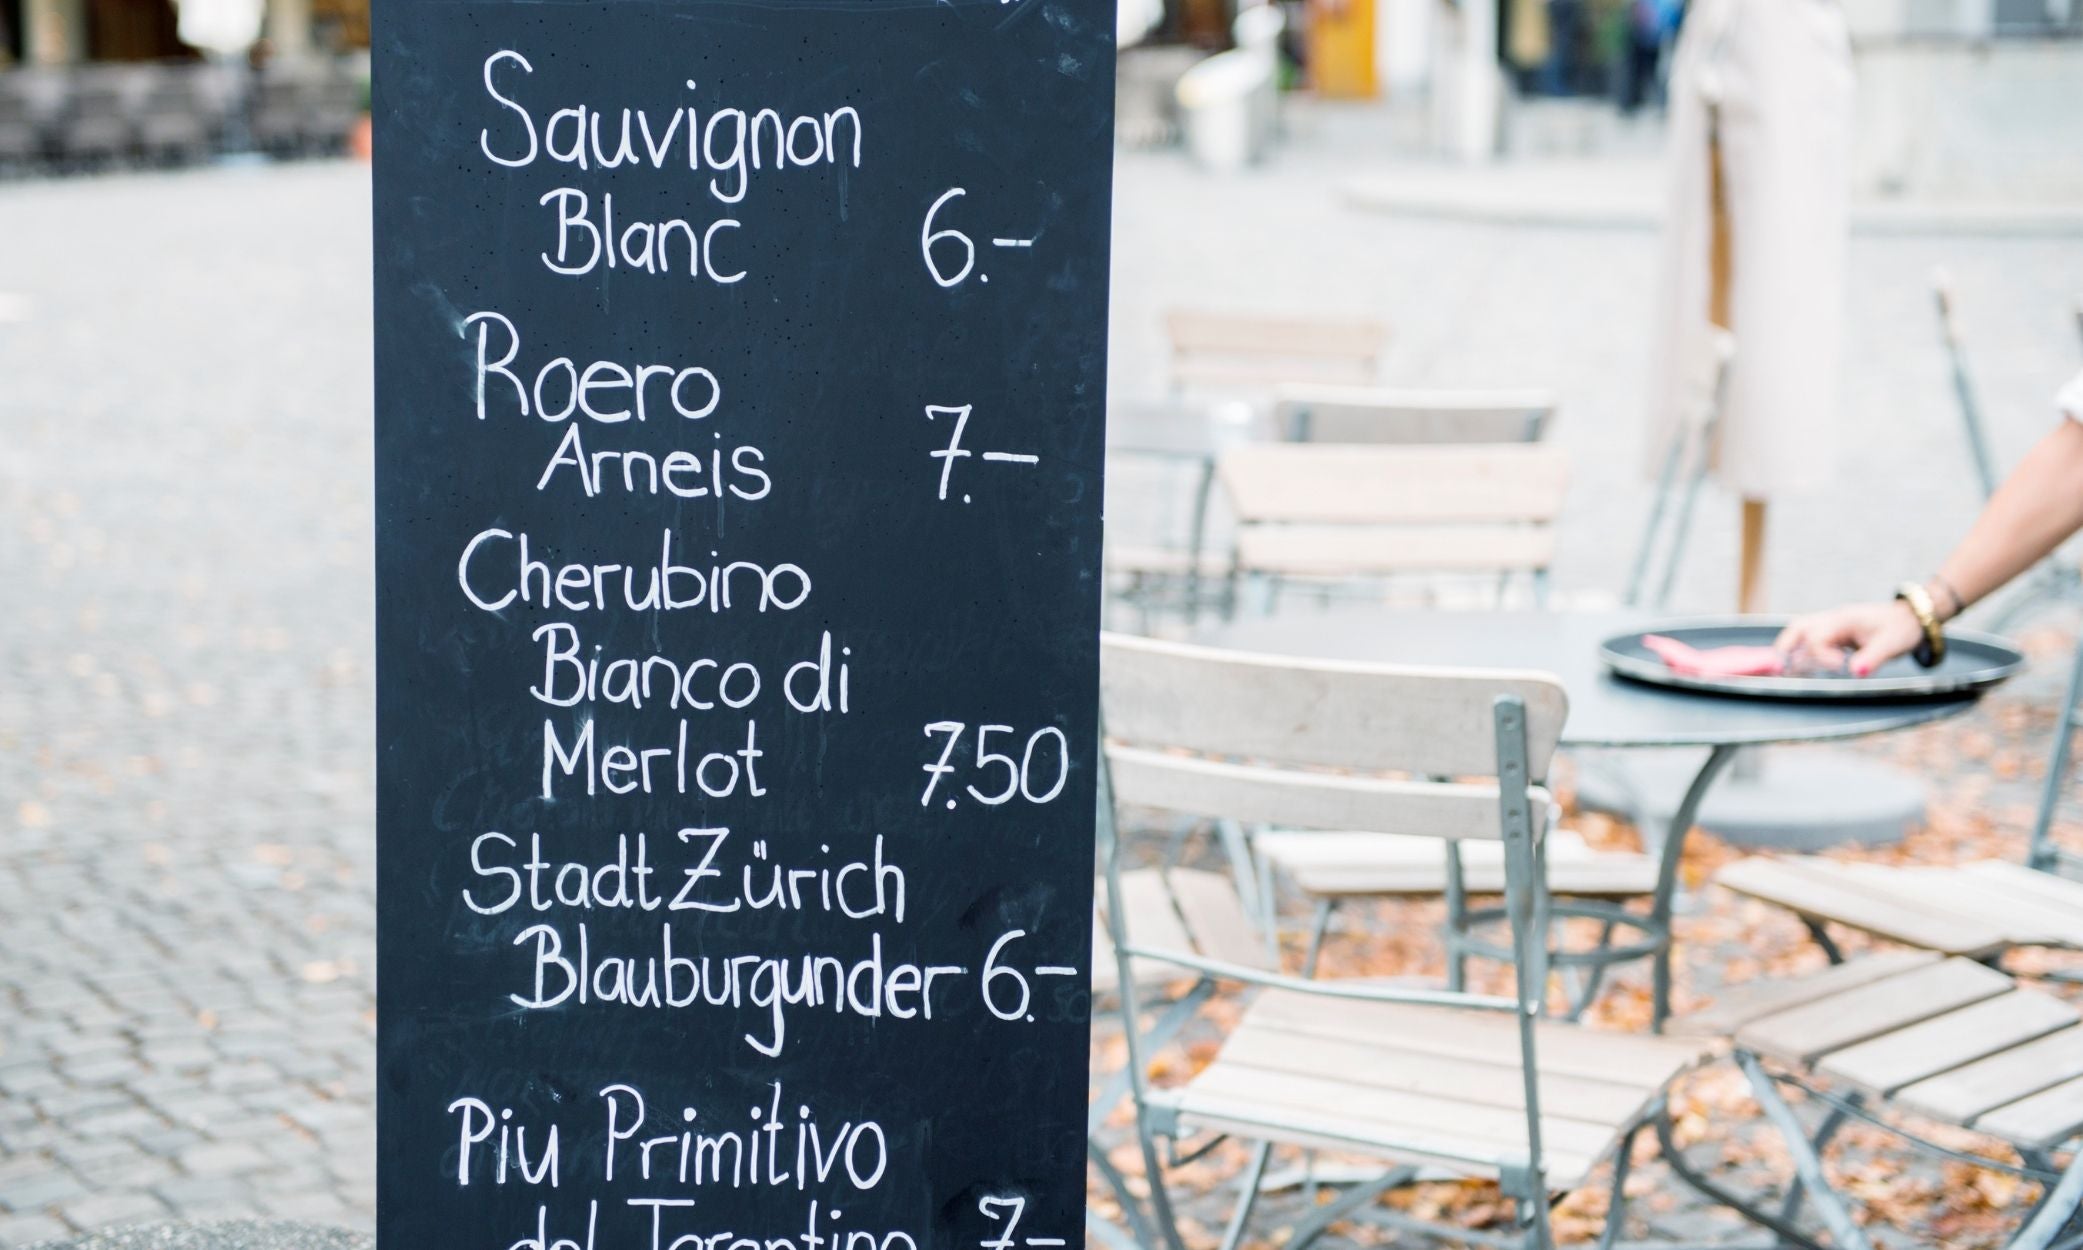 Sauvignon
Blanc 6.-
Roero
Arneis 7.-
Cherubino
Bianco di
Merlot 7.50
Stadt Zürich
Blauburgunder 6.-
Piu Primitivo
del Tarantino 7.-